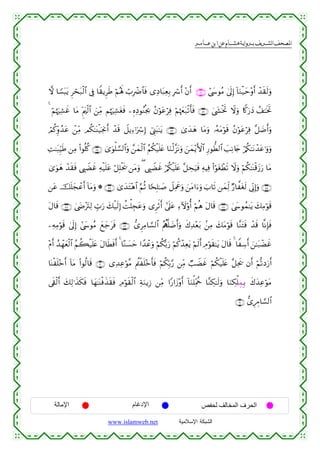 المصحف الشريف برواية هشام عن ابن عامر
وَلَقَدۡ أَوۡحَيۡنَآ إِلَىٰ مُوسَىٰٓ أَنۡ أَسۡرِ بِعِبَادِي فَٱضۡرِبۡ لَهُمۡ طَرِيقٗا فِي ٱلۡبَحۡرِ يَبَسٗا لَّا
تَخَٰفُ دَرَكٗا وَلَا تَخۡشَىٰ فَأَتۡبَعَهُمۡ فِرۡعَوۡنُ بِجُنُودِهِۦ فَغَشِيَهُم مِّنَ ٱلۡيَمِّ مَا غَشِيَهُمۡ
وَأَضَلَّ فِرۡعَوۡنُ قَوۡمَهُۥ وَمَا هَدَىٰ يَٰبَنِيٓ إِسۡرَٰٓءِيلَ قَدۡ أَنجَيۡنَٰكُم مِّنۡ عَدُوِّكُمۡ
وَوَٰعَدۡنَٰكُمۡ جَانِبَ ٱلطُّورِ ٱلۡأَيۡمَنَ وَنَزَّلۡنَا عَلَيۡكُمُ ٱلۡمَنَّ وَٱلسَّلۡوَىٰ كُلُواْ مِن طَيِّبَٰتِ
مَا رَزَقۡنَٰكُمۡ وَلَا تَطۡغَوۡاْ فِيهِ فَيَحِلَّ عَلَيۡكُمۡ غَضَبِي وَمَن يَحۡلِلۡ عَلَيۡهِ غَضَبِي فَقَدۡ هَوَىٰ
وَإِنِّي لَغَفَّارٞ لِّمَن تَابَ وَءَامَنَ وَعَمِلَ صَٰلِحٗا ثُمَّ ٱهۡتَدَىٰ ۞ وَمَآ أَعۡجَلَكَ عَن
قَوۡمِكَ يَٰمُوسَىٰ قَالَ هُمۡ أُوْلَآءِ عَلَىٰٓ أَثَرِي وَعَجِلۡتُ إِلَيۡكَ رَبِّ لِتَرۡضَىٰ قَالَ
فَإِنَّا قَدۡ فَتَنَّا قَوۡمَكَ مِنۢ بَعۡدِكَ وَأَضَلَّهُمُ ٱلسَّامِرِيُّ فَرَجَعَ مُوسَىٰٓ إِلَىٰ قَوۡمِهِۦ
غَضۡبَٰنَ أَسِفٗا قَالَ يَٰقَوۡمِ أَلَمۡ يَعِدۡكُمۡ رَبُّكُمۡ وَعۡدًا حَسَنًا أَفَطَالَ عَلَيۡكُمُ ٱلۡعَهۡدُ أَمۡ
أَرَدتُّمۡ أَن يَحِلَّ عَلَيۡكُمۡ غَضَبٞ مِّن رَّبِّكُمۡ فَأَخۡلَفۡتُم مَّوۡعِدِي قَالُواْ مَآ أَخۡلَفۡنَا
مَوۡعِدَكَ بِمِلۡكِنَا وَلَٰكِنَّا حُمِّلۡنَآ أَوۡزَارٗا مِّن زِينَةِ ٱلۡقَوۡمِ فَقَذَفۡنَٰهَا فَكَذَٰلِكَ أَلۡقَى
ٱلسَّامِرِيُّ
الحرف المخالف لحفص الإدغام الإمالة
الشبكة الإسلامية www.islamweb.net